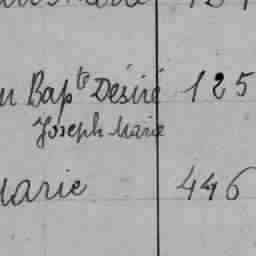 Bapte Désiré 125
Joseph Marie
Marie 446